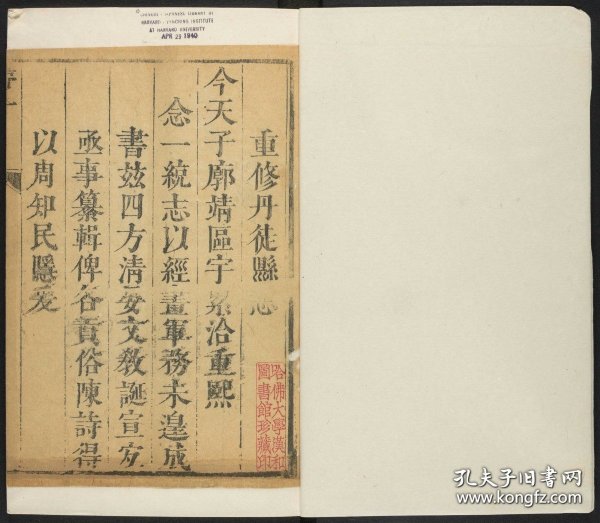 CHINESE - JAPANESE LIBRARY OF
HARVARD - YENCHING INSTITUTE
AT HARVARD UNIVERSITY
APR 29 1940
重修丹徒縣志
今天子廓靖區宇累洽重熙
念一統志以經畫軍務未遑成
書玆四方清晏文敎誕宣宜
亟事纂輯俾各賫俗陳詩得
以周知民隱爰
哈佛大學漢和
圖書館珍藏印
孔夫子旧书网
www.kongfz.com